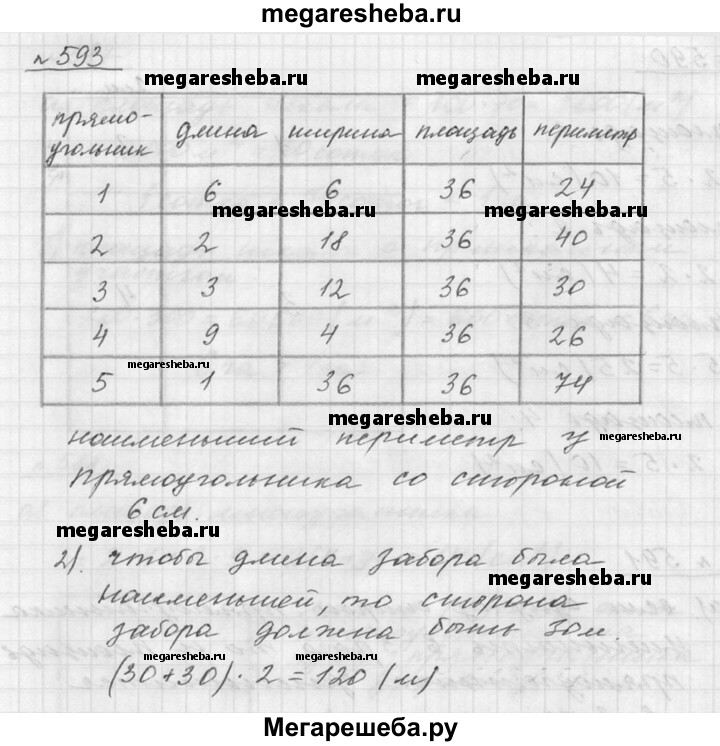 megaresheba.ru
№ 593
megaresheba.ru megaresheba.ru
прямо-
угольник длина ширина площадь периметр
1 6 6 36 24
megaresheba.ru megaresheba.ru
2 2 18 36 40
3 3 12 36 30
4 9 4 36 26
megaresheba.ru
5 1 36 36 74
megaresheba.ru
наименьший периметр у
megaresheba.ru
прямоугольника со стороной
6 см.
megaresheba.ru
2). чтобы длина забора была
megaresheba.ru
наименьшей, то сторона
забора должна быть 30 м.
megaresheba.ru megaresheba.ru
(30+30) · 2 = 120 (м)
Мегарешеба.ру